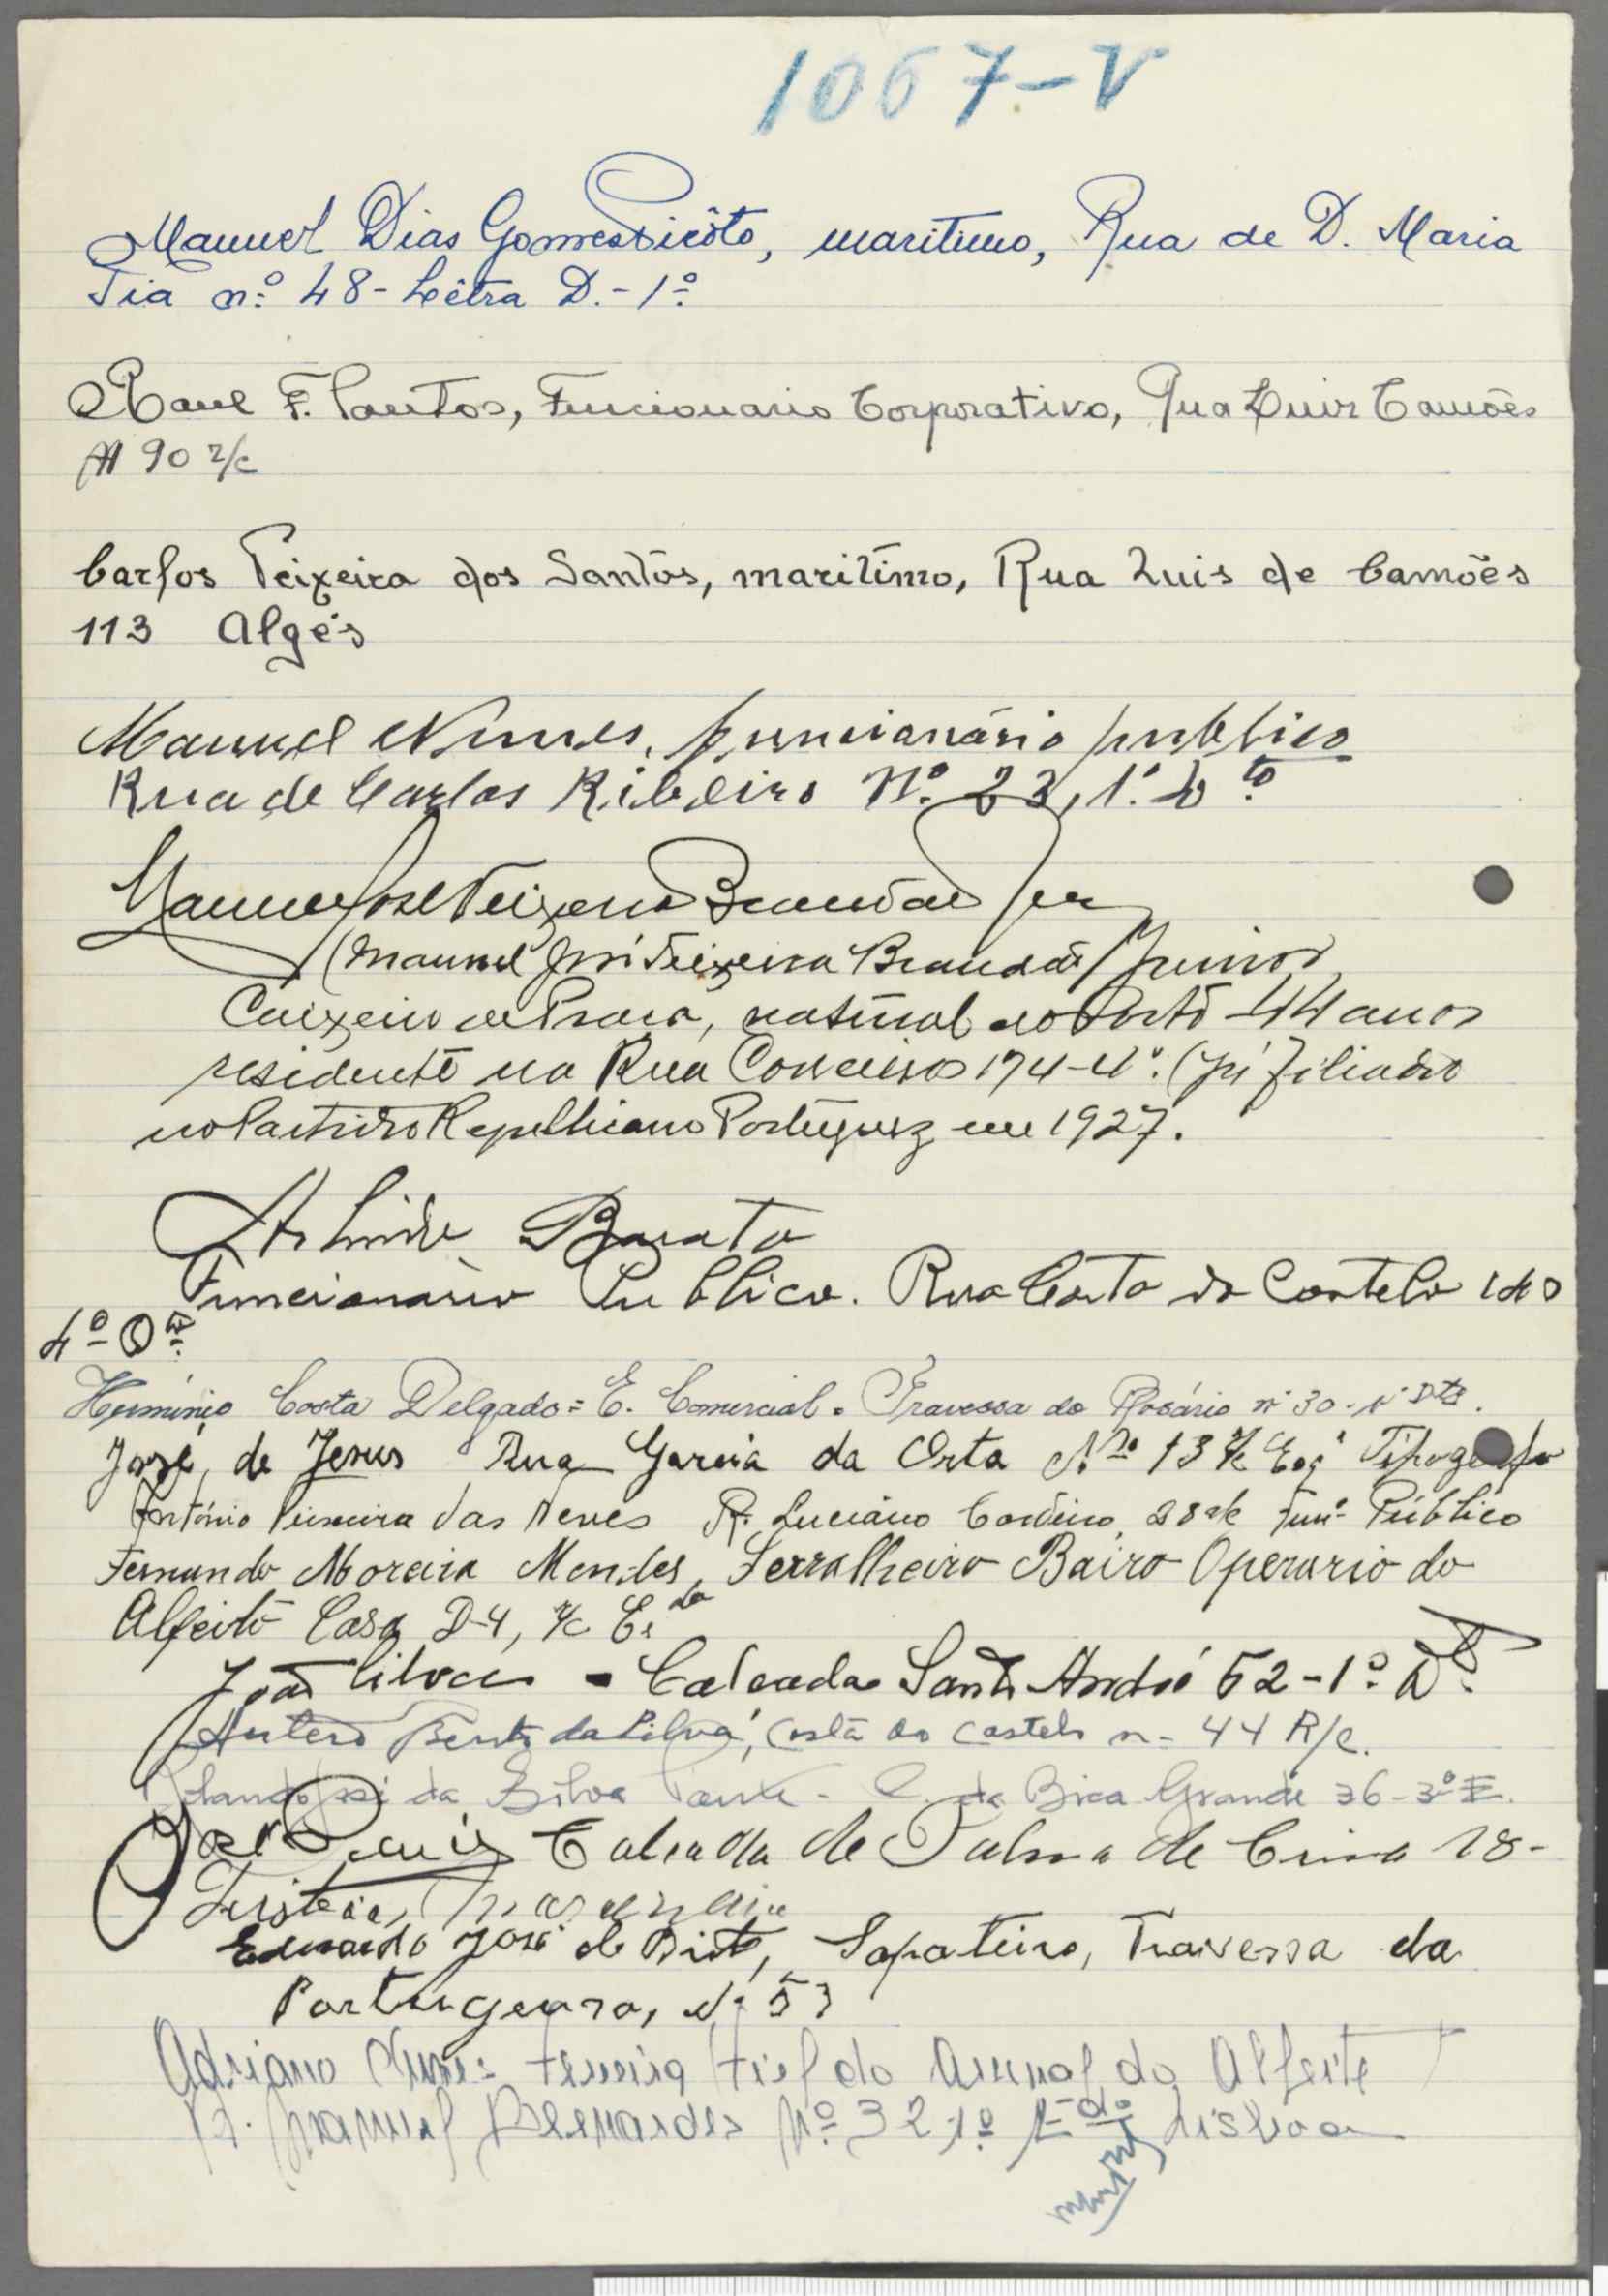 1067-V
Manuel Dias Gomes Picôto, maritimo, Rua de D. Maria
Pia n.º 48 - Lêtra D. - 1º
Raul F. Santos, Funcionario Corporativo, Rua Luiz Camões
Nº 90 r/c
Carlos Teixeira dos Santos, maritimo, Rua Luis de Camões
113 Algés
Manuel Nunes, funcionário publico
Rua de Carlos Ribeiro Nº. 23, 1.º
Manuel José Teixeira Brandão Jor
(Manuel José Teixeira Brandão Junior
Caixeiro de Praça, natural do Porto 44 anos
residente na Rua Conceição 174-4º. (já filiado
no Partido Republicano Portuguez em 1927.
Arlindo Barata
Funcionário Publico. Rua Costa do Castelo 140
4º
Herminio Costa Delgado = E. Comercial. Travessa do Rosário nº 30 - 1º Dtº.
José, de Jesus Rua Garcia da Orta Nº 13 r/c Esqº Tipografo
António Pereira das Neves R. Luciano Cordeiro, 28 r/c Funº Público
Fernando Moreira Mendes, Serralheiro Bairo Operario do
Alfeite Casa D-4, r/c
João Silva - Calcada Santo André 52-1º. Dt.
Antero Bento da Silva, Costa do Castelo nº 44 R/c.
Rolando José da Silva da Bica Grande 36-3º E.
José Luis Calcada de Palma de Cima 18-
Lisboa,
Eduardo José de Brito, Sapateiro, Travessa da
Portuguesa, Nº 53
Adriano Nunes Ferreira fiel do Arsenal do Alfeite
R. Manuel Bernardes Nº 32 1º Edº Lisboa